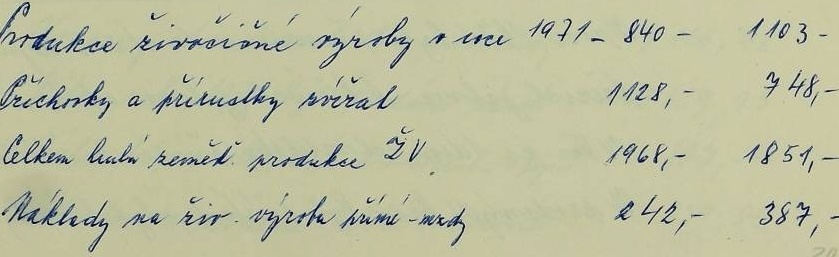 Produkce živočišné výroby v roce 1971 – 840 – 1103 –
Příchovky a přírustky zvířat 1128,- 748,-
Celkem hrubá zeměď. produkce ŽV 1968,- 1851,-
Náklady na živ. výrobu přímé - mzdy 242,- 387,-